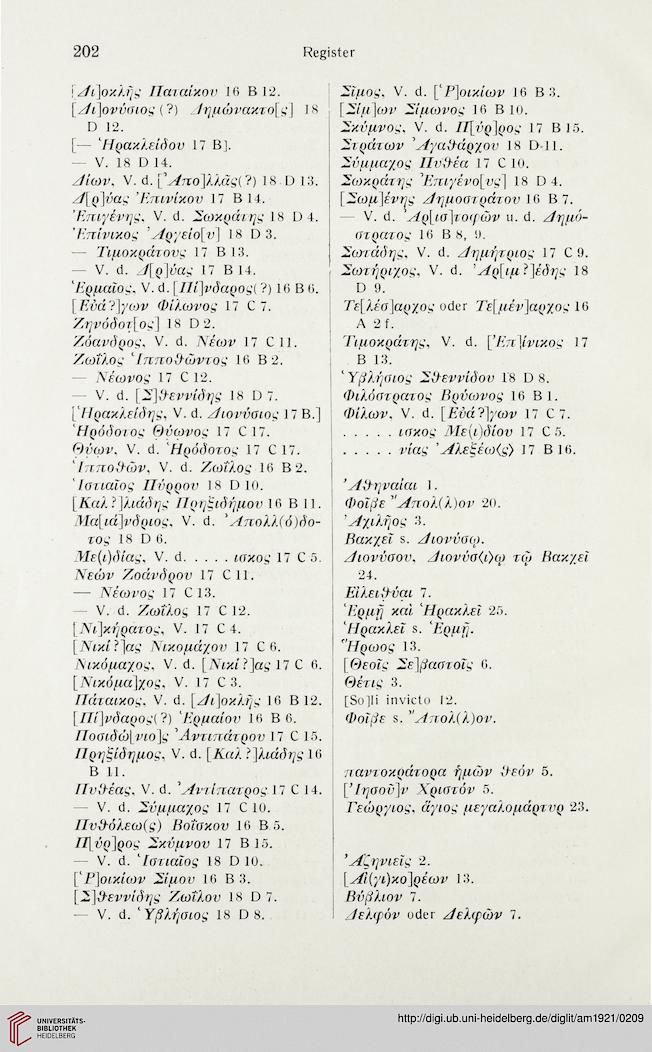 202
Register
[Δι]οκλῆς Παταίκου 16 B 12.
[Δι]ονύσιος (?) Δημώνακτο[ς] 18
D 12.
[— Ἡρακλείδου 17 B].
— V. 18 D 14.
Δίων, V. d. [Ἀπο]λλᾶς(?) 18 D 13.
Δ[ρ]ύας Ἐπινίκου 17 B 14.
Ἐπιγένης, V. d. Σωκράτης 18 D 4.
Ἐπίνικος Ἀργείο[υ] 18 D 3.
— Τιμοκράτους 17 B 13.
— V. d. Δ[ρ]ύας 17 B 14.
Ἑρμαῖος, V. d. [Πί]νδαρος(?) 16 B 6.
[Εὐά?]γων Φίλωνος 17 C 7.
Ζηνόδοτ[ος] 18 D 2.
Ζόανδρος, V. d. Νέων 17 C 11.
Ζωΐλος Ἱπποθῶντος 16 B 2.
— Νέωνος 17 C 12.
— V. d. [Σ]θεννίδης 18 D 7.
[Ἡρακλείδης, V. d. Διονύσιος 17 B.]
Ἡρόδοτος Θύωνος 17 C 17.
Θύων, V. d. Ἡρόδοτος 17 C 17.
Ἱπποθῶν, V. d. Ζωΐλος 16 B 2.
Ἱστιαῖος Πύρρου 18 D 10.
[Καλ?]λιάδης Πρηξιδήμου 16 B 11.
Μα[ιά]νδριος, V. d. Ἀπολλ(ό)δο-
τος 18 D 6.
Με(ι)δίας, V. d. . . . . . ισκος 17 C 5.
Νεών Ζοάνδρου 17 C 11.
— Νέωνος 17 C 13.
— V. d. Ζωΐλος 17 C 12.
[Νι]κήρατος, V. 17 C 4.
[Νικί?]ας Νικομάχου 17 C 6.
Νικόμαχος, V. d. [Νικί?]ας 17 C 6.
[Νικόμα]χος, V. 17 C 3.
Πάταικος, V. d. [Δι]οκλῆς 16 B 12.
[Πί]νδαρος(?) Ἑρμαίου 16 B 6.
Ποσιδώ[νιο]ς Ἀντιπάτρου 17 C 15.
Πρηξίδημος, V. d. [Καλ?]λιάδης 16
B 11.
Πυθέας, V. d. Ἀντίπατρος 17 C 14.
— V. d. Σύμμαχος 17 C 10.
Πυθόλεω(ς) Βοΐσκου 16 B 5.
Π[ύρ]ρος Σκύμνου 17 B 15.
— V. d. Ἱστιαῖος 18 D 10.
[Ῥ]οικίων Σίμου 16 B 3.
[Σ]θεννίδης Ζωΐλου 18 D 7.
— V. d. Ὑβλήσιος 18 D 8.
Σῖμος, V. d. [Ῥ]οικίων 16 B 3.
[Σίμ]ων Σίμωνος 16 B 10.
Σκύμνος, V. d. Π[ύρ]ρος 17 B 15.
Στράτων Ἀγαθάρχου 18 D 11.
Σύμμαχος Πυθέα 17 C 10.
Σωκράτης Ἐπιγένο[υς] 18 D 4.
[Σωμ]ένης Δημοστράτου 16 B 7.
— V. d. Ἀρ[ισ]τοφῶν u. d. Δημό-
στρατος 16 B 8, 9.
Σωτάδης, V. d. Δημήτριος 17 C 9.
Σωτήριχος, V. d. Ἀρ[ιμ?]έδης 18
D 9.
Τε[λέσ]αρχος oder Τε[μέν]αρχος 16
A 2 f.
Τιμοκράτης, V. d. [Ἐπ]ίνικος 17
B 13.
Ὑβλήσιος Σθεννίδου 18 D 8.
Φιλόστρατος Βρύωνος 16 B 1.
Φίλων, V. d. [Εὐά?]γων 17 C 7.
. . . . . ισκος Με(ι)δίου 17 C 5.
. . . . . νίας Ἀλεξέω⟨ς⟩ 17 B 16.
Ἀθηναίαι 1.
Φοῖβε Ἄπολ(λ)ον 20.
Ἀχιλῆος 3.
Βακχεῖ s. Διονύσῳ.
Διονύσου, Διονύσ⟨ι⟩ῳ τῷ Βακχεῖ
24.
Εἰλειθύαι 7.
Ἑρμῇ καὶ Ἡρακλεῖ 25.
Ἡρακλεῖ s. Ἑρμῇ.
Ἥρωος 13.
[Θεοῖς Σε]βαστοῖς 6.
Θέτις 3.
[So]li invicto 12.
Φοῖβε s. Ἄπολ(λ)ον.
παντοκράτορα ἡμῶν θεόν 5.
[Ἰησοῦ]ν Χριστόν 5.
Γεώργιος, ἅγιος μεγαλομάρτυρ 23.
Ἀζηνιεῖς 2.
[Αἰ(γι)κο]ρέων 13.
Βύβλιον 7.
Δελφόν oder Δελφῶν 7.
UNIVERSITÄTS-
BIBLIOTHEK
HEIDELBERG
http://digi.ub.uni-heidelberg.de/diglit/am1921/0209